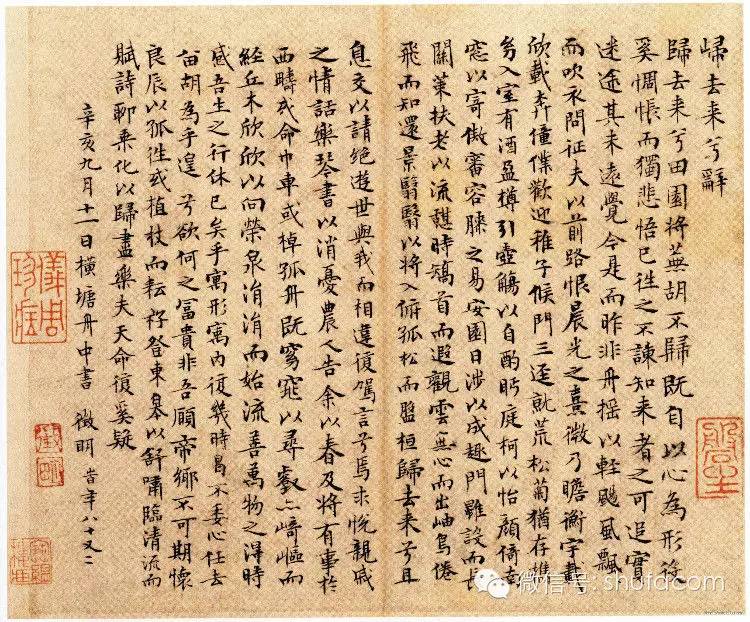 歸去来兮辭
歸去来兮田園將蕪胡不歸既自以心為形役
奚惆悵而獨悲悟已往之不諫知来者之可追實
迷途其未遠覺今是而昨非舟摇以輕颺風飄
而吹衣問征夫以前路恨晨光之熹微乃瞻衡宇載
欣載奔僮僕歡迎稚子候門三逕就荒松菊猶存攜
幼入室有酒盈樽引壺觴以自酌眄庭柯以怡顔倚南
窓以寄傲審容膝之易安園日涉以成趣門雖設而長
關策扶老以流憩時矯首而遐觀雲無心而出岫鳥倦
飛而知還景翳翳以將入俯孤松而盤桓歸去来兮且
息交以請絶遊世與我而相違復駕言兮焉求悅親戚
之情話樂琴書以消憂農人告余以春及將有事於
西疇或命巾車或棹孤舟既窈窕以尋壑亦崎嶇而
經丘木欣欣以向榮泉涓涓而始流善萬物之得時
感吾生之行休已矣乎寓形寓内復幾時曷不委心任去
留胡為乎遑兮欲何之富貴非吾願帝鄉不可期懷
良辰以孤徃或植杖而耘耔登東皋以舒嘯臨清流而
賦詩聊乘化以歸盡樂夫天命復奚疑
辛亥九月十一日橫塘舟中書 徵明 時年八十又二
微信号: shufd.com